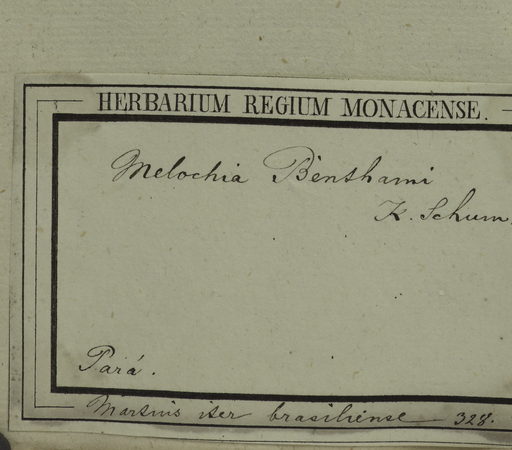 HERBARIUM REGIUM MONACENSE.
Melochia Benthami
K. Schum.
Pará.
Martius iter brasiliense 328.